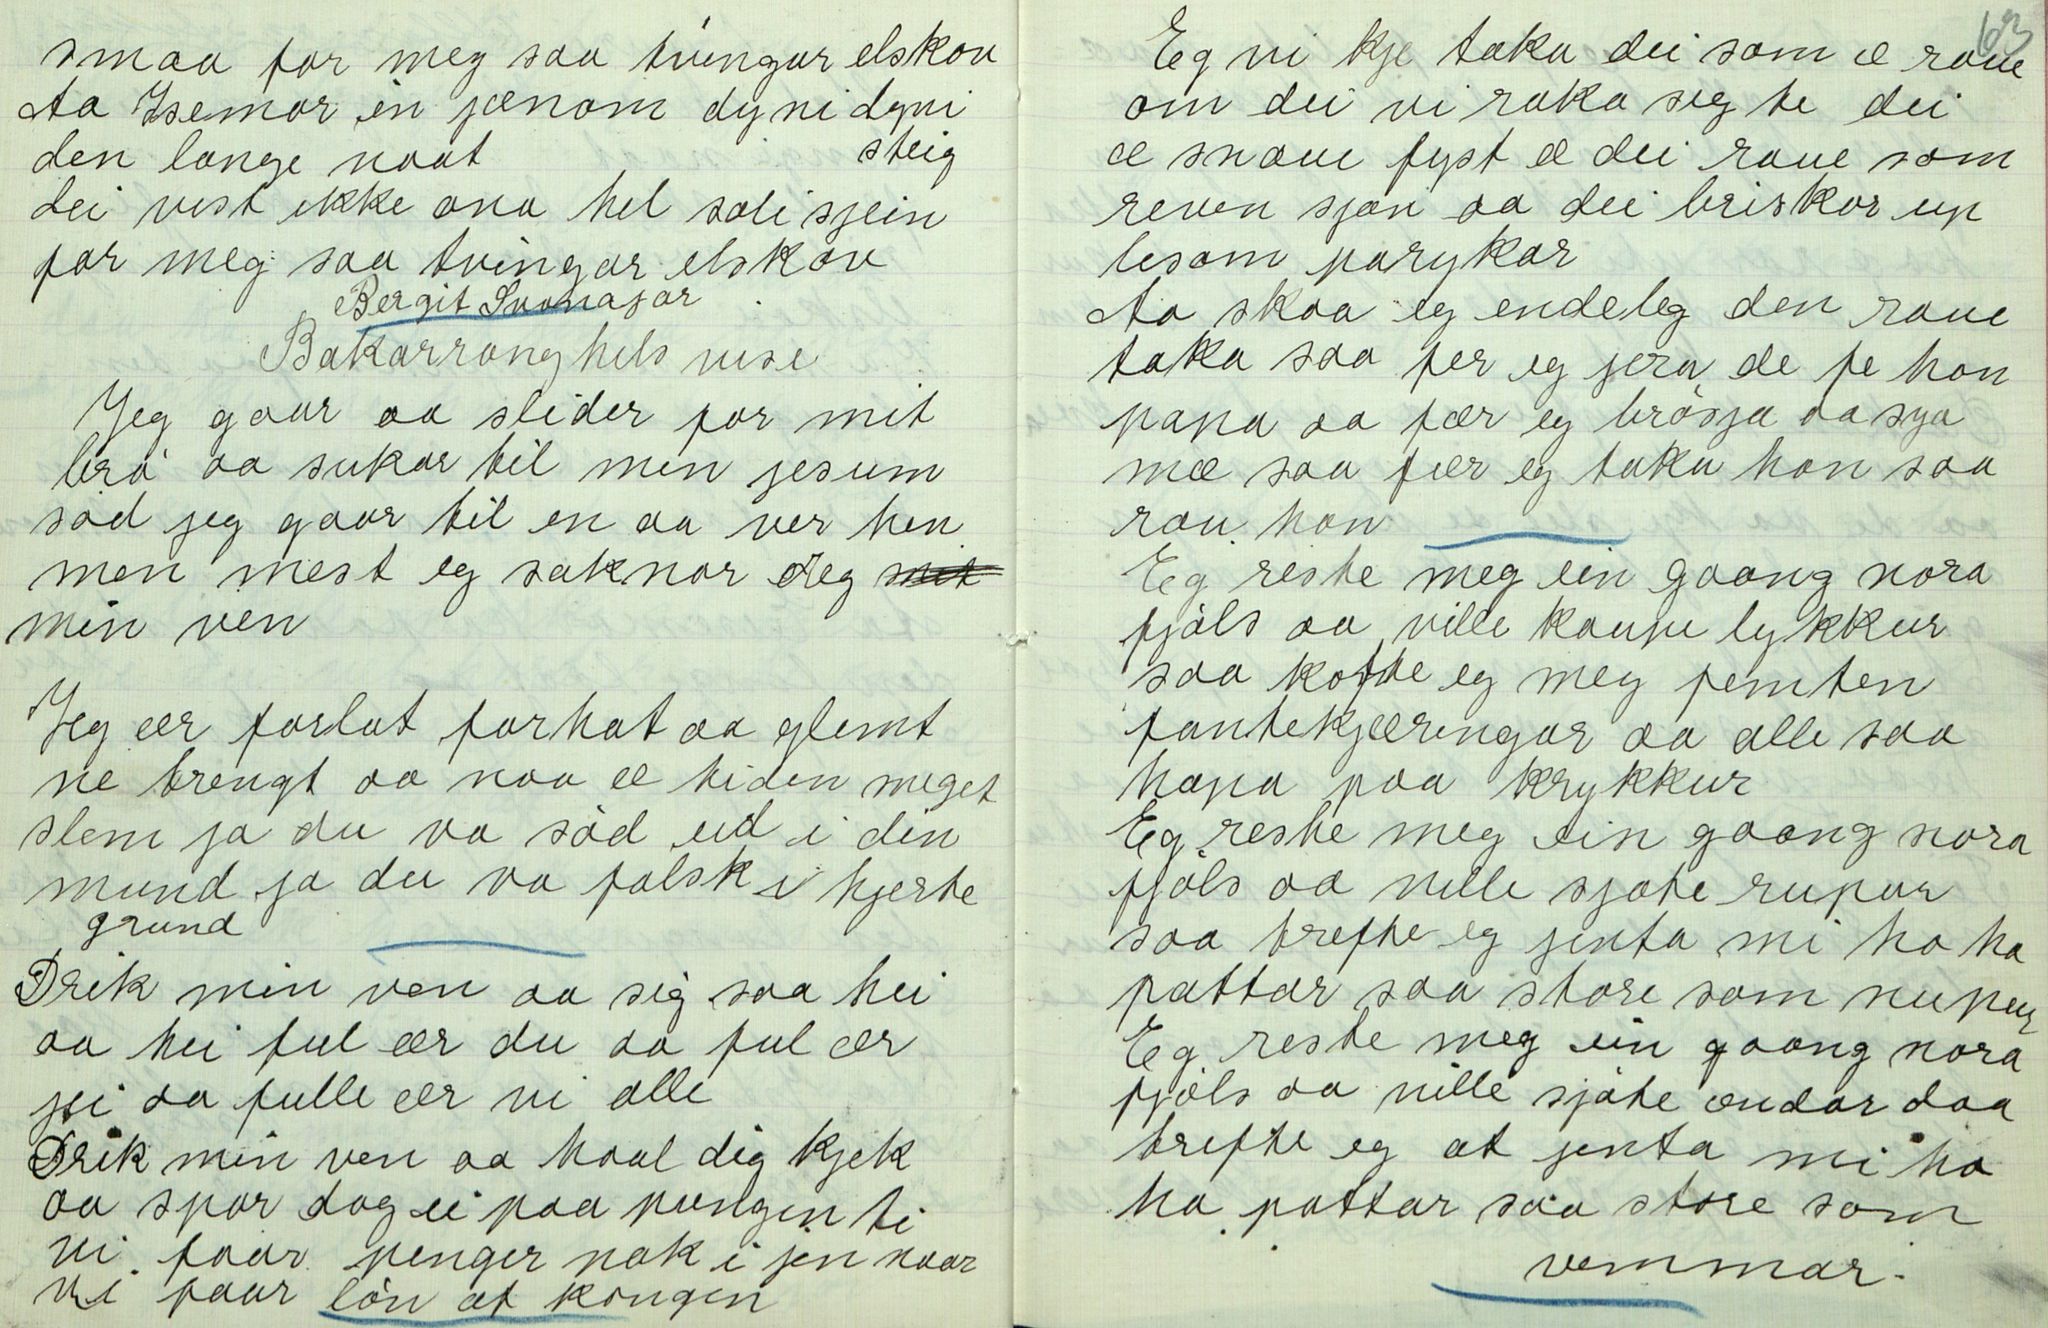 smaa for meg saa tvingar elskou
Aa Isemar in jænom dyni dyni
den lange naat steig
dei vist ikke ana hel soli sjein
for meg saa tvingar elskou
Bergit Svonajar
Bakarranghels vise
Jeg gaar aa slider for mit
brö aa sukar til min jesum
söd jeg gaar til en aa ver hen
men mest eg saknar deg
min ven
Jeg ær forlat forhat aa glemt
ne trengt aa naa æ tiden meget
slem ja du va söd ud i din
mund ja du va falsk i hjerte
grund
Drik min ven aa sig saa hei
aa hei ful ær du aa ful ær
jei aa fulle ær vi alle
Drik min ven aa haal dig kjek
aa spar dog ei paa pungen ti
vi faar penger nok i jen naar
vi faar lön af kongen
63
Eg vi kje taka dei som æ raue
om dei vi raka seg te dei
æ snaue fyst æ dei raue som
reven sjön aa dei briskar up
lesom parykar
Aa skaa eg endeleg den raue
taka saa fer eg jera de fe han
papa aa fær eg brösja aa sya
mæ saa fær eg taka han saa
rau han
Eg reste meg ein goong nora
fjöls aa ville kaupe lykkur
saa kofte eg meg femten
fantekjæringar aa alle saa
hapa paa krykkur
Eg reste meg ein goong nora
fjöls aa ville sjote rupur
saa trefte eg jenta mi ho ha
pattar saa store som nupur
Eg reste meg ein goong nora
fjöls aa ville sjöte ændar daa
trefte eg at jenta mi ho
ha pattar saa store som
vemmar.